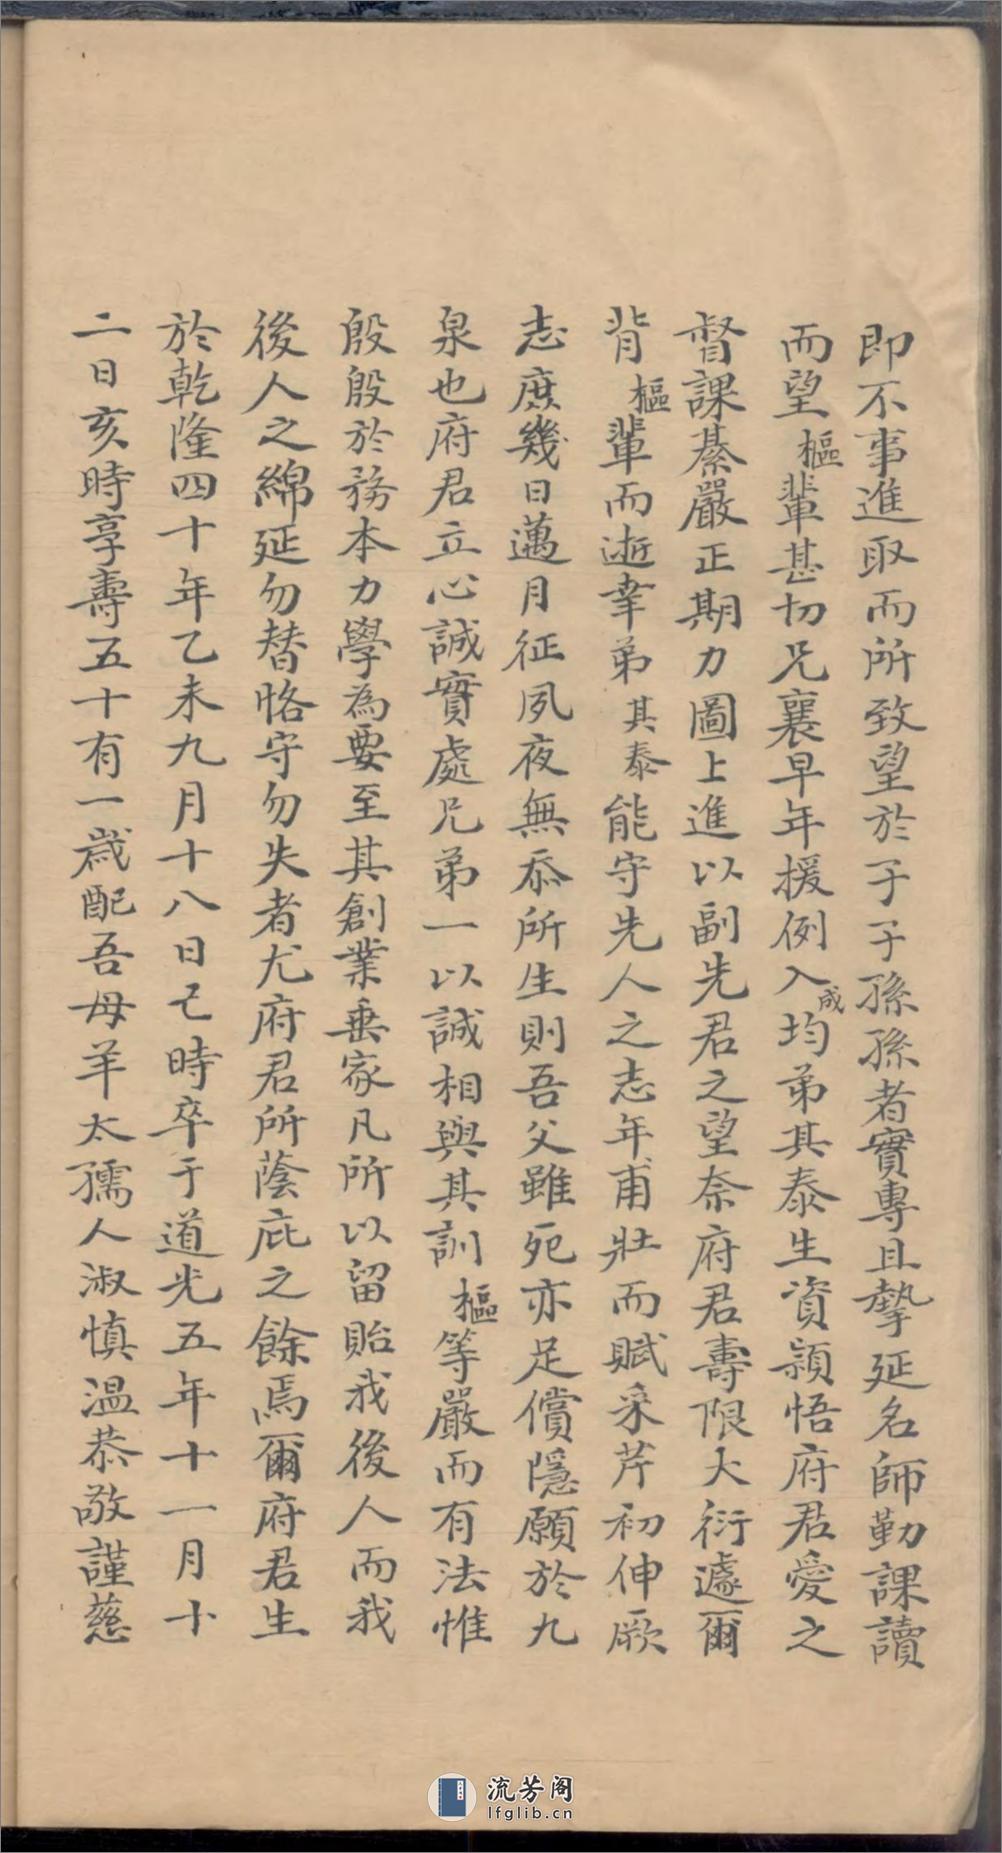 即不事進取而所致望於子子孫孫者實專且摯延名師勤課讀
而望樞輩甚切兄襄早年援例入成均弟其泰生資穎悟府君愛之
督課綦嚴正期力圖上進以副先君之望奈府君壽限大衍遽爾
背樞輩而逝幸弟其泰能守先人之志年甫壯而賦采芹初伸厥
志庶幾日邁月征夙夜無忝所生則吾父雖死亦足償隱願於九
泉也府君立心誠實處兄弟一以誠相與其訓樞等嚴而有法惟
殷殷於務本力學為要至其創業垂家凡所以留貽我後人而我
後人之綿延勿替恪守勿失者尤府君所蔭庇之餘焉爾府君生
於乾隆四十年乙未九月十八日己時卒于道光五年十一月十
二日亥時享壽五十有一歲配吾母羊太孺人淑慎溫恭敬謹慈
流芳阁
lfglib.cn